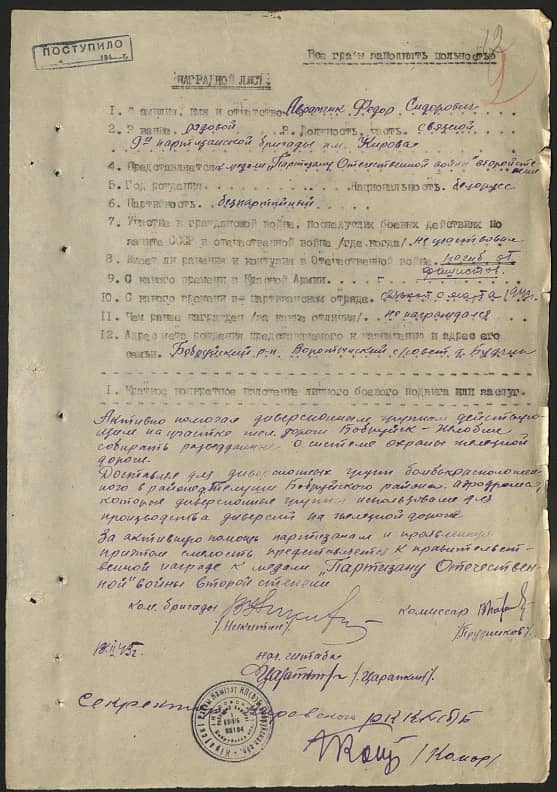 ПОСТУПИЛО
194 г.
Все графы заполнить полностью
НАГРАДНОЙ ЛИСТ.
1. Фамилия, имя и отчество Авратник Федор Сидорович
2. Звание рядовой 3. Должность, часть связной
9й партизанской бригады им. Кирова
4. Представляется к медали "Партизану Отечественной войны" второй степени
5. Год рождения Национальность. белорусс
6. Партийность. беспартийный
7. Участие в гражданской войне, последующих боевых действиях по
защите СССР и отечественной войне /где, когда/. не участвовал
8. Имеет ли ранения и контузии в Отечественной войне. погиб от
фашистов
9. С какого времени в Красной Армии. -
10. С какого времени в партизанском отряде. с марта 1943г.
11. Чем ранее награжден /за какие отличия/. не награждался
12. Адрес места рождения представляемого к назначению и адрес его
семьи. Бобруйский р-н. Воротынский с/совет. д.
1. Краткое конкретное изложение личного боевого подвига или заслуг.
Активно помогая диверсионным группам действую-
щим на участке жел. дороги Бобруйск - Жлобин
собирать разведданные о системе охраны железной
дороги.
Доставлял для диверсионных групп бомбы расположен-
ного в районе Бобруйского района аэродрома,
которые диверсионные группы использовали для
производства диверсий на железной дороге
За активную помощь партизанам и проявленную
притом смелость представляется к правительст-
венной награде к медали "Партизану Отечествен-
ной войны" второй степени
ком. бригады /Никитин/
комиссар /Прудников/.
18.II.45г.
нач. штаба
/Царапкин/.
Секретарь Кировского РК КП(б)Б
/Комар/